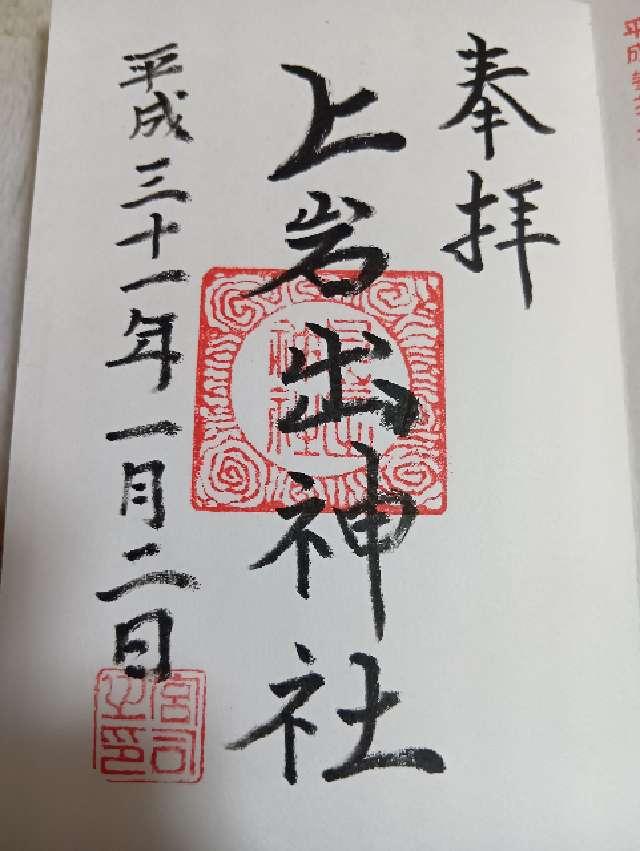 奉拝
上岩出神社
平成三十一年一月二日
宮司之印